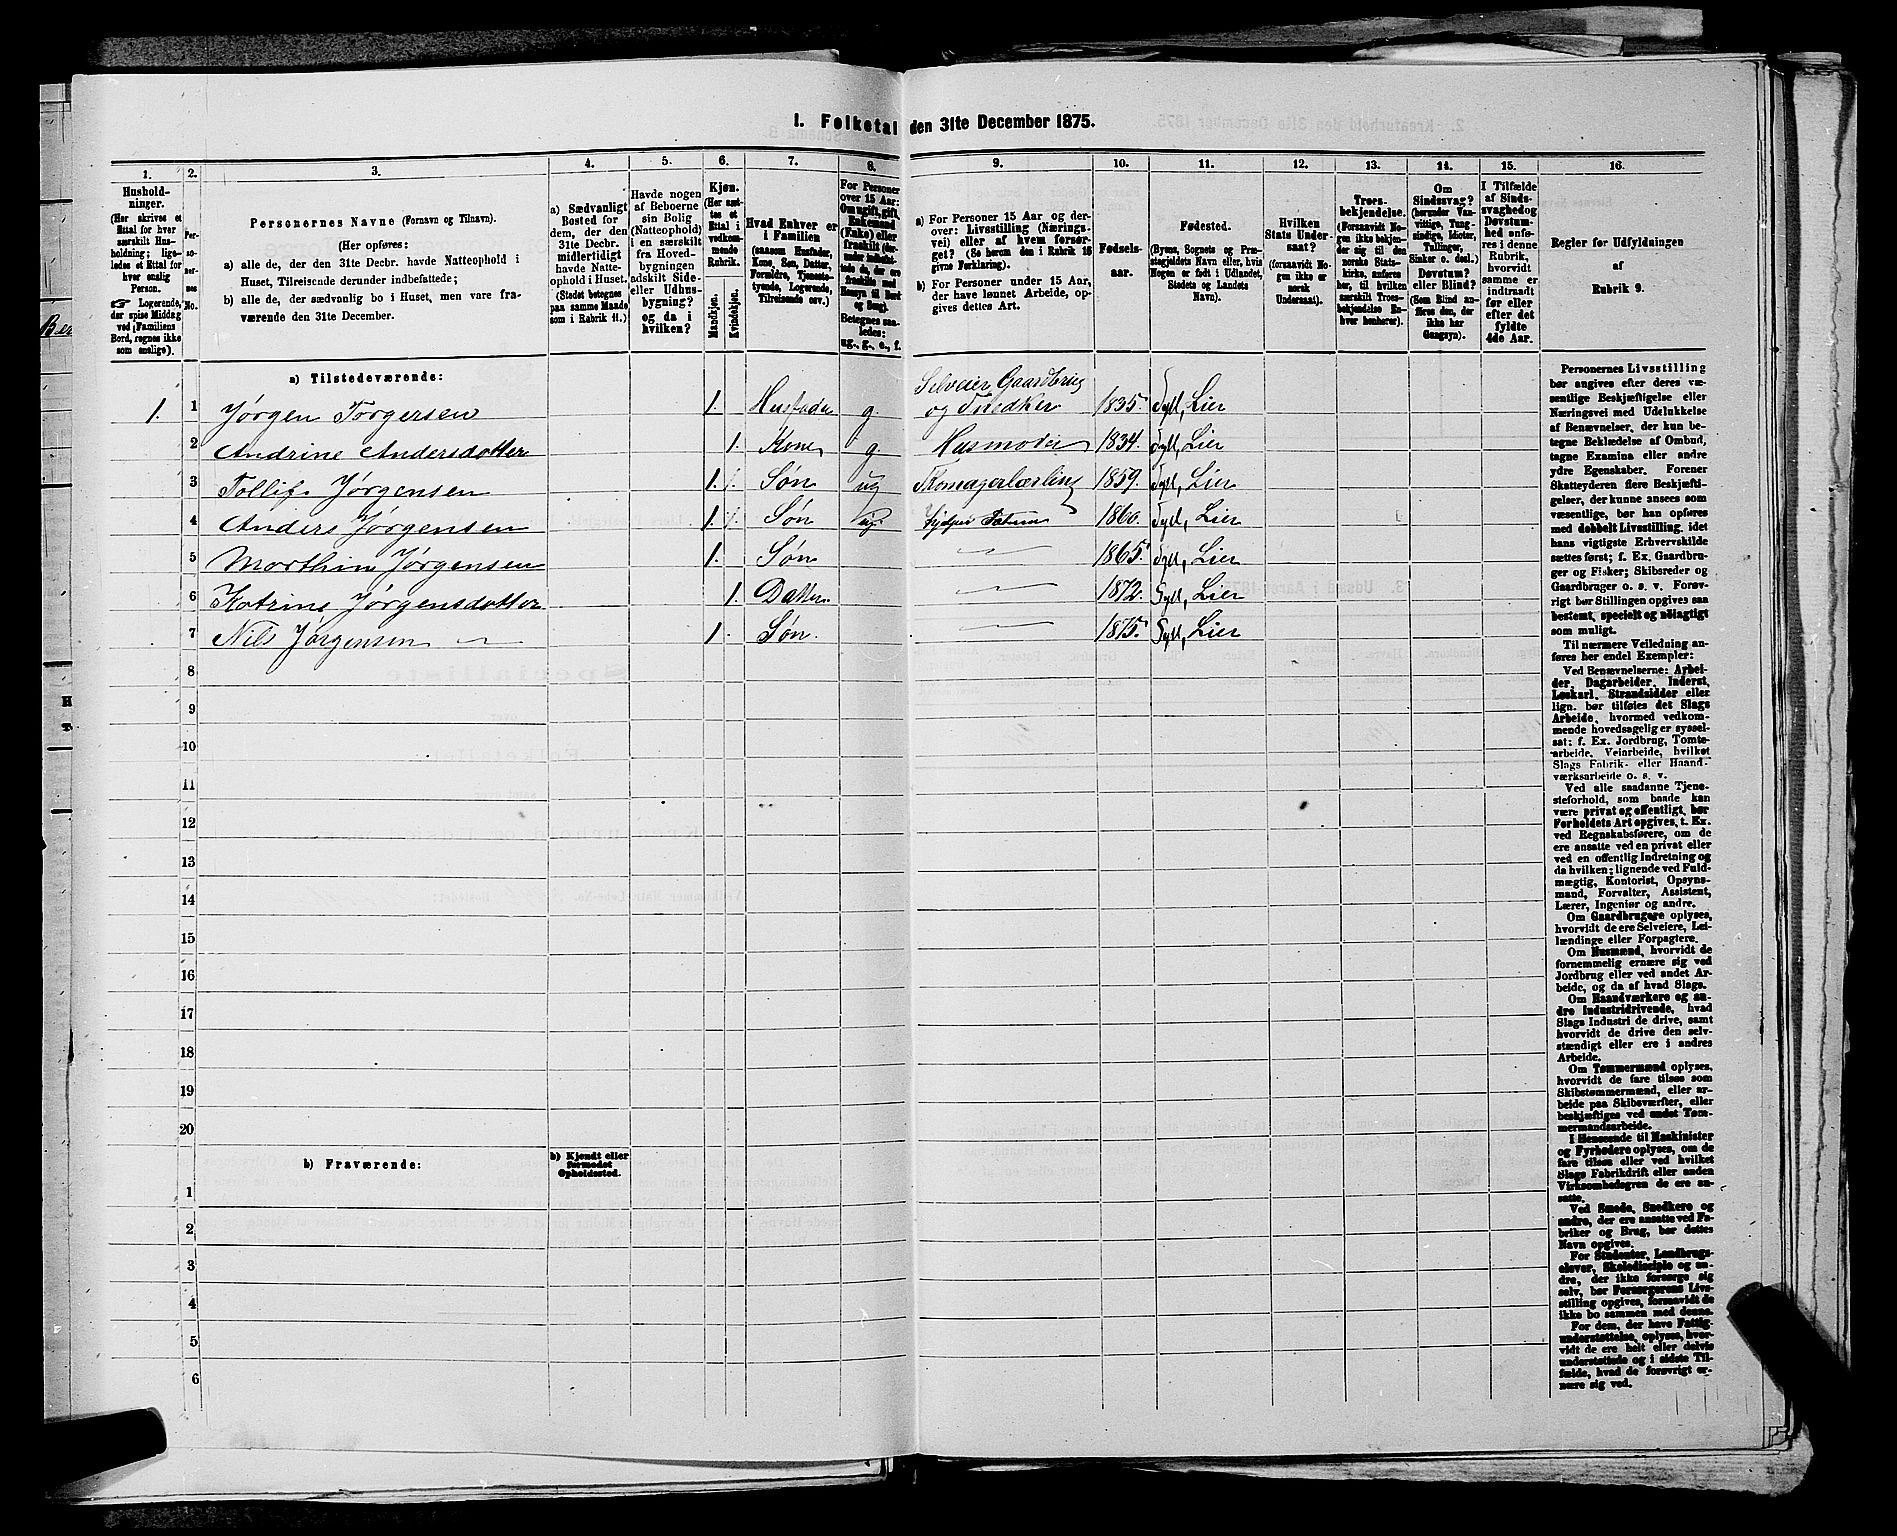 1. Folketal den 31te December 1875.
1. 2. 3. 4. 5. 6. 7. 8. 9. 10. 11. 12. 13. 14. 15. 16.
Hushold-
ninger.
(Her skrives et
Ettal for hver
særskilt Hus-
holdning; lige-
ledes et Ettal for
hver enslig
Person.
☞ Logerende,
der spise Middag
ved Familiens
Bord, regnes ikke
som enslige).
Per-
so-
ner-
nes
No.
Personernes Navne (Fornavn og Tilnavn).
(Her opføres:
a) alle de, der den 31te Decbr. havde Natteophold i
Huset, Tilreisende derunder indbefattede;
b) alle de, der sædvanlig bo i Huset, men vare fra-
værende den 31te December.
a) Sædvanligt
Bosted for
dem, der den
31te Decbr.
midlertidigt
havde Natte-
ophold i Huset.
(Stedet betegnes
paa samme Maade,
som i Rubrik 11.)
Havde nogen
af Beboerne
sin Bolig
(Natteophold)
i en særskilt
fra Hoved-
bygningen
adskilt Side-
eller Udhus-
bygning?
og da i
hvilken?
Kjøn.
(Her sæt-
tes et
Ettal i
vedkom-
mende
Rubrik.
Mandkjøn.
Kvindekjøn.
Hvad Enhver er
i Familien
(saasom Husfader,
Kone, Søn, Datter,
Forældre, Tjeneste-
tyende, Logerende,
Tilreisende osv.)
For Personer
over 15 Aar:
Om ugift, gift,
Enkemand
(Enke) eller
fraskilt (der-
under indbefat-
tede de, der ere
fraskilte med
Hensyn til Bord
og Seng).
Betegnes saa-
ledes:
ug., g., e., f.
a) For Personer 15 Aar og der-
over: Livsstilling (Nærings-
vei) eller af hvem forsør-
get? (Se herom den i Rubrik 16
givne Forklaring).
b) For Personer under 15 Aar,
der have lønnet Arbeide, op-
gives dettes Art.
Fødsels-
aar.
Fødested.
(Byens, Sognets og Præ-
stegjeldets Navn eller, hvis
Nogen er født i Udlandet,
Stedets og Landets
Navn).
Hvilken
Stats Under-
saat?
(forsaavidt No-
gen ikke er
norsk
Undersaat).
Troes-
bekjendelse.
(Forsaavidt No-
gen ikke bekjen-
der sig til den
norske Stats-
kirke, anføres
her, til hvilken
særskilt Troes-
bekjendelse En-
hver henhører).
Om
Sindssvag?
(herunder Van-
vittige, Tung-
sindige, Idioter,
Tullinger,
Sinker o. desl.)
Døvstum?
eller Blind?
(Som Blind an-
føres den, der
ikke har
Gangsyn).
I Tilfælde
af Sinds-
svaghed og
Døvstum-
hed anfø-
res i denne
Rubrik,
hvorvidt
samme er
indtraadt
før eller
efter det
fyldte
4de Aar.
Regler for Udfyldningen
af
Rubrik 9.
a) Tilstedeværende:
Selveier Gaardbrug
1. 1 Jørgen Torgersen 1. Husfader g og Snedker 1835. Syll, Lier
2 Andrine Andersdotter 1. Kone g. Husmoder 1834. Syll, Lier
3 Tollif Jørgensen 1. Søn ug 1859. Syll, Lier
4 Anders Jørgensen 1. Søn ug 1860. Syll, Lier
5 Morthin Jørgensen 1. Søn 1865. Syll, Lier
6 Katrine Jørgensdotter 1. Datter 1872. Syll, Lier
7 Nils Jørgensen 1. Søn. 1875. Syll, Lier
8
9
10
11
12
13
14
15
16
17
18
19
20
b) Fraværende:
b) Kjendt eller
formodet
Opholdssted.
1
2
3
4
5
6
Personernes Livsstilling
bør angives efter deres væ-
sentlige Beskjæftigelse eller
Næringsvei med Udelukkelse
af Benævnelser, der kun be-
tegne Beklædelse af Ombud,
tagne Examina eller andre
ydre Egenskaber. Forener
Skatteyderen flere Beskjæfti-
gelser, der kunne ansees som
væsentlige, bør han opføres
med dobbelt Livsstilling, idet
hans vigtigste Erhvervskilde
sættes først; f. Ex. Gaardbru-
ger og Fisker; Skibsreder og
Gaardbruger o. s. v. Forøv-
rigt bør Stillingen opgives saa
bestemt, specielt og nøiagtigt
som muligt.
Til nærmere Veiledning an-
føres her endel Exempler:
Ved Benævnelserne: Arbei-
der, Dagarbeider, Inderst,
Løskarl, Strandsidder eller
lign. bør tilføies det Slags
Arbeide, hvormed vedkom-
mende hovedsagelig er syssel-
sat; f. Ex. Jordbrug, Tomte-
arbeide, Veiarbeide, hvilket
Slags Fabrik- eller Haand-
værksarbeide o. s. v.
Ved alle saadanne Tjene-
steforhold, som baade kan
være privat og offentligt, bør
Forholdets Art opgives, t. Ex.
ved Regnskabsførere, om de
ere ansatte ved en privat eller
ved en offentlig Indretning og
da hvilken; lignende ved Fuld-
mægtig, Kontorist, Opsyns-
mand, Forvalter, Assistent,
Lærer, Ingeniør og andre.
Om Gaardbrugere oplyses,
hvorvidt de ere Selveiere, Lei-
lændinge eller Forpagtere.
Om Husmænd, hvorvidt de
fornemmelig ernære sig ved
Jordbrug eller ved andet Ar-
beide, og da af hvad Slags.
Om Haandværkere og an-
dre Industridrivende, hvad
Slags Industri de drive, samt
hvorvidt de drive den selv-
stændigt eller ere i andres
Arbeide.
Om Tømmermænd oplyses,
hvorvidt de fare tilsøs som
Skibstømmermænd, eller ar-
beide paa Skibsværfter, eller
beskjæftiges ved andet Tøm-
mermandsarbeide.
I Henseende til Maskinister
og Fyrbødere oplyses, om de
fare tilsøs eller ved hvilket
Slags Fabrikdrift eller anden
Virksomhedsgren de ere an-
satte.
Ved Smede, Snedkere og
andre, der ere ansatte ved Fa-
briker og Brug, bør dettes
Navn opgives.
For Studenter, Landbrugs-
elever, Skoledisciple og an-
dre, der ikke forsørge sig
selv, bør Forsørgerens Livs-
stilling opgives, forsaavidt de
ikke bo sammen med denne.
For dem, der have Fattig-
understøttelse, oplyses, hvor-
vidt de ere helt eller delvis
understøttede og i sidste Til-
fælde, hvad de forøvrigt er-
nære sig ved.